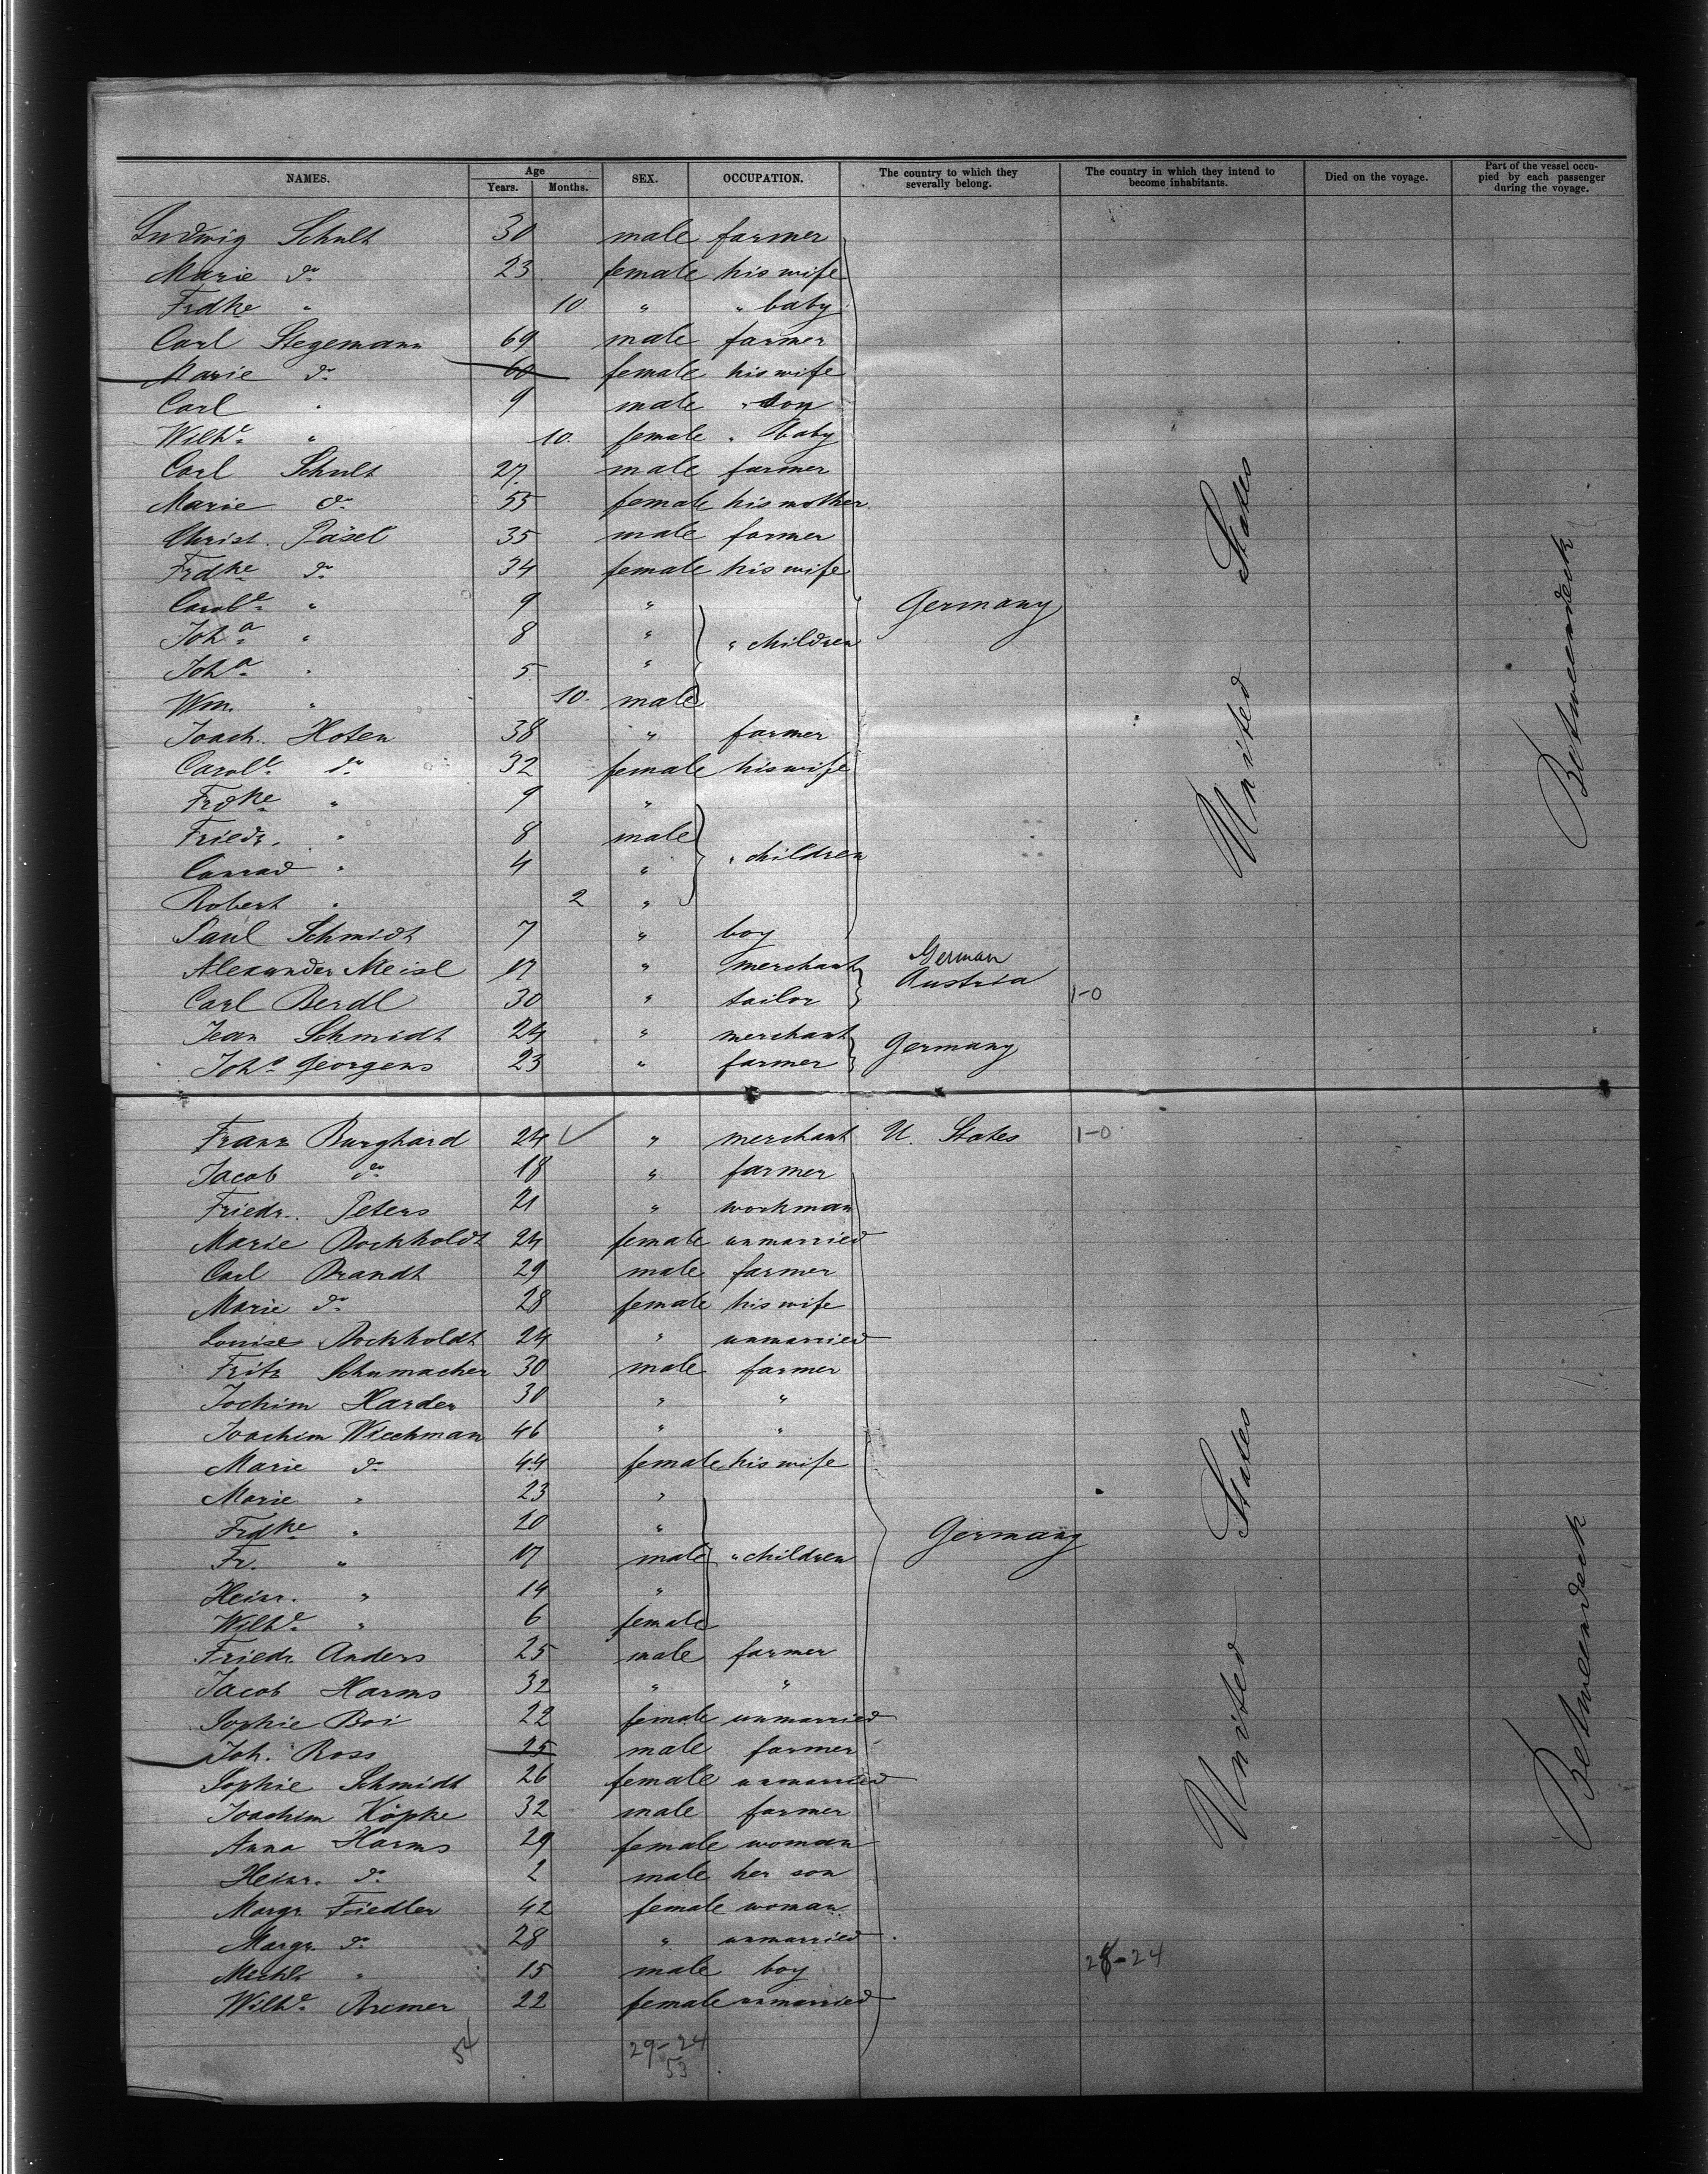 NAMES. Age Years. Months. SEX. OCCUPATION. The country to which they severally belong. The country in which they intend to become inhabitants. Died on the voyage. Part of the vessel occupied by each passenger during the voyage.
Ludwig Schult 30 male farmer
Marie do 23 female his wife
Frdke " 10. " " baby
Carl Stegemann 69 male farmer
Marie do 60 female his wife
Carl " 9 male " son
Wilhe " 10. female " baby
Carl Schult 27. male farmer
Marie do 55 female his mother
Christ. Päsel 35 male farmer
Frdke do 34 female his wife
Carole " 9 " Germany
Joha " 8 " " children
Joha " 5 "
Wm. " 10. male
Joach. Hoten 38 " farmer
Carole do 32 female his wife
Frdke " 9 "
Friedr. " 8 male
Conrad " 4 " " children
Robert " 2 "
Paul Schmidt 7 " boy
Alexander Meisl 17 " merchant German Austria
Carl Berdl 30 " tailor 1-0
Jean Schmidt 24 " merchant Germany
Johs Georgens 23 " farmer
United States
Betweendeck
Franz Burghard 24 " merchant U. States 1-0
Jacob do 18 " farmer
Friedr. Peters 21 " workman
Marie Bockholdt 24 female unmarried
Carl Brandt 29 male farmer
Marie do 28 female his wife
Louise Bockholdt 24 " unmarried
Fritz Schumacher 30 male farmer
Jochim Harder 30 " "
Joachim Wiechman 46 " "
Marie do 44 female his wife
Marie " 23 "
Frdke " 20 " Germany
Fr. " 17 male " children
Heinr. " 14 "
Wilhe " 6 female
Friedr. Anders 25 male farmer
Jacob Harms 32 " "
Sophie Boi 22 female unmarried
Joh. Ross 25 male farmer
Sophie Schmidt 26 female unmarried
Joachim Köpke 32 male farmer
Anna Harms 29 female woman
Heinr. do 2 male her son
Margr. Fiedler 42 female woman
Margr. do 28 " unmarried
" 15 male boy 28-24
Wilhe Bremer 22 female unmarried
United States
Betweendeck
54 29-24
53